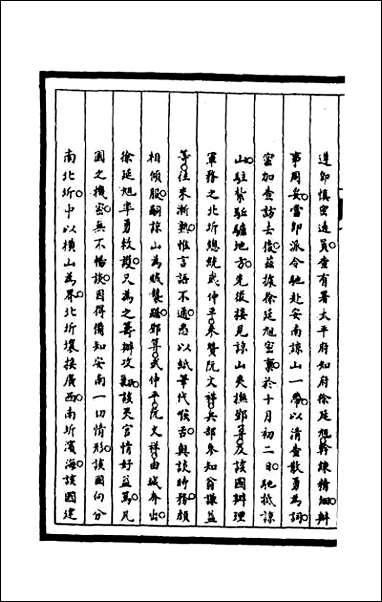 遵即慎密遴員查有署太平府知府徐延旭幹練精細辦
事周妥當即派令馳赴安南諒山一帶以清查散勇為詞
密加查訪去後茲據徐延旭密稟於十月初二日馳抵諒
山駐紮驅驢地方先後接見諒山夷撫鄧 及該國辦理
軍務之北圻總統武仲平參贊阮文祥兵部參知翁謙益
等往來漸熟惟言語不通悉以紙筆代喉舌與談時務頗
相傾服嗣諒山為賊襲踞鄧 武仲平阮文祥由城奔出
徐延旭率勇救護又為之籌辦攻剿該夷官情好益篤凡
國之機密無不暢談因得備知安南一切情形該國向分
南北圻中以橫山為界北圻壤接廣西南圻濱海該國建